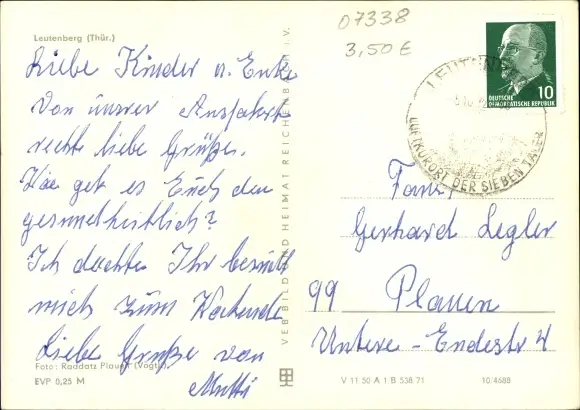 07338
3,50 €
Leutenberg (Thür.)
Liebe Kinder u. Enke
Von unsrer Ausfahrt
recht liebe Grüße.
Wie geht es Euch denn
gesundheitlich?
Ich dachte Ihr besucht
mich zum Wochende
Liebe Grüße von
Mutti
Foto: Raddatz Plauen (Vogtl.)
EVP 0,25 M
VEB BILD UND HEIMAT REICHENBACH i. V.
10
DEUTSCHE
DEMOKRATISCHE REPUBLIK
LEUTENBERG
LUFTKURORT DER SIEBEN TÄLER
Fam.
Gerhard Legler
99 Plauen
Untere-Endestr 4
V 11 50 A 1 B 538/71
10/4688